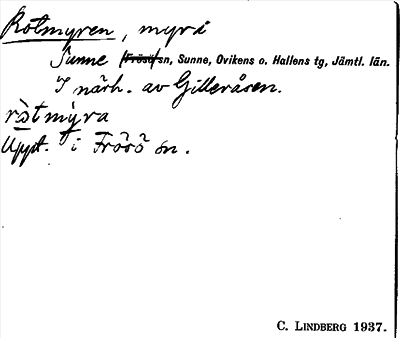 Rotmyren, myra
Sunne (Frösö) sn, Sunne, Ovikens o. Hallens tg, Jämtl. län.
I närh. av Gilleråsen.
ròtmýra
Uppt. i Frösö sn.
C. LINDBERG 1937.